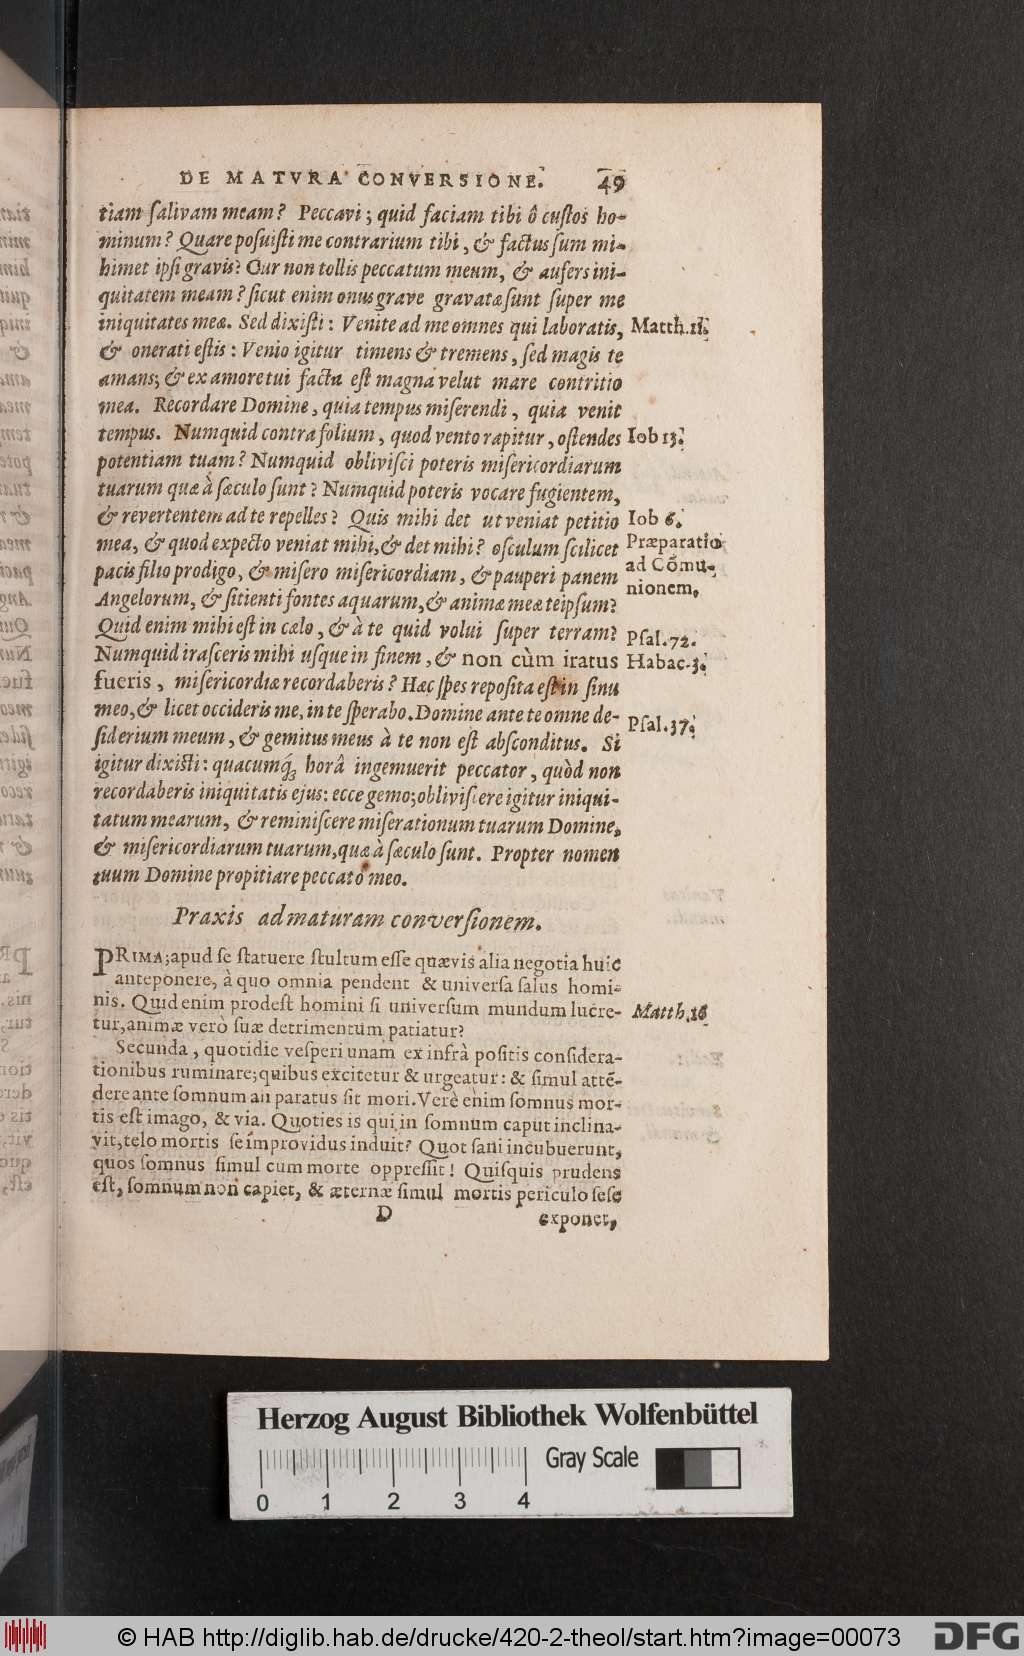 DE MATVRA CONVERSIONE. 49
tiam ſalivam meam? Peccavi; quid faciam tibi ô cuſtos ho-
minum? Quare poſuiſti me contrarium tibi, & factus ſum mi-
himet ipſi gravis? Cur non tollis peccatum meum, & aufers ini-
quitatem meam? ſicut enim onus grave gravatæ ſunt ſuper me
iniquitates meæ. Sed dixiſti: Venite ad me omnes qui laboratis,
Matth. 11.
& onerati eſtis: Venio igitur timens & tremens, ſed magis te
amans; & ex amore tui facta eſt magna velut mare contritio
mea. Recordare Domine, quia tempus miſerendi, quia venit
tempus. Numquid contra folium, quod vento rapitur, oſtendes
Iob 13.
potentiam tuam? Numquid obliviſci poteris miſericordiarum
tuarum quæ à ſæculo ſunt? Numquid poteris vocare fugientem,
& revertentem ad te repelles? Quis mihi det ut veniat petitio
Iob 6.
mea, & quod expecto veniat mihi, & det mihi? oſculum ſcilicet
Præparatio
pacis filio prodigo, & miſero miſericordiam, & pauperi panem
ad Cõmu-
Angelorum, & ſitienti fontes aquarum, & animæ meæ teipſum?
nionem.
Quid enim mihi eſt in cælo, & à te quid volui ſuper terram?
Pſal. 72.
Numquid iraſceris mihi uſque in finem, & non cùm iratus
Habac. 3.
fueris, miſericordiæ recordaberis? Hæc ſpes repoſita eſt in ſinu
meo, & licet occideris me, in te ſperabo. Domine ante te omne de-
Pſal. 37.
ſiderium meum, & gemitus meus à te non eſt abſconditus. Si
igitur dixiſti: quacumq́; horâ ingemuerit peccator, quòd non
recordaberis iniquitatis ejus: ecce gemo; obliviſcere igitur iniqui-
tatum mearum, & reminiſcere miſerationum tuarum Domine,
& miſericordiarum tuarum, quæ à ſæculo ſunt. Propter nomen
tuum Domine propitiare peccato meo.
Praxis ad maturam converſionem.
PRIMA; apud ſe ſtatuere ſtultum eſſe quævis alia negotia huic
anteponere, à quo omnia pendent & univerſa ſalus homi-
nis. Quid enim prodeſt homini ſi univerſum mundum lucre-
Matth. 16
tur, animæ verò ſuæ detrimentum patiatur?
Secunda, quotidie veſperi unam ex infrà poſitis conſidera-
tionibus ruminare; quibus excitetur & urgeatur: & ſimul attẽ-
dere ante ſomnum an paratus ſit mori. Verè enim ſomnus mor-
tis eſt imago, & via. Quoties is qui in ſomnum caput inclina-
vit, telo mortis ſe improvidus induit? Quot ſani incubuerunt,
quos ſomnus ſimul cum morte oppreſſit! Quiſquis prudens
eſt, ſomnum non capiet, & æternæ ſimul mortis periculo ſeſe
D exponet,
Herzog August Bibliothek Wolfenbüttel
Gray Scale
0 1 2 3 4
© HAB http://diglib.hab.de/drucke/420-2-theol/start.htm?image=00073
DFG